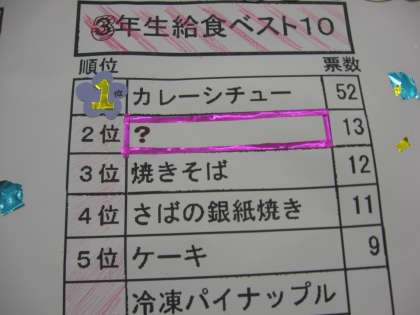 ③年生給食ベスト10
順位 票数
1位 カレーシチュー 52
2位 ? 13
3位 焼きそば 12
4位 さばの銀紙焼き 11
5位 ケーキ 9
冷凍パイナップル